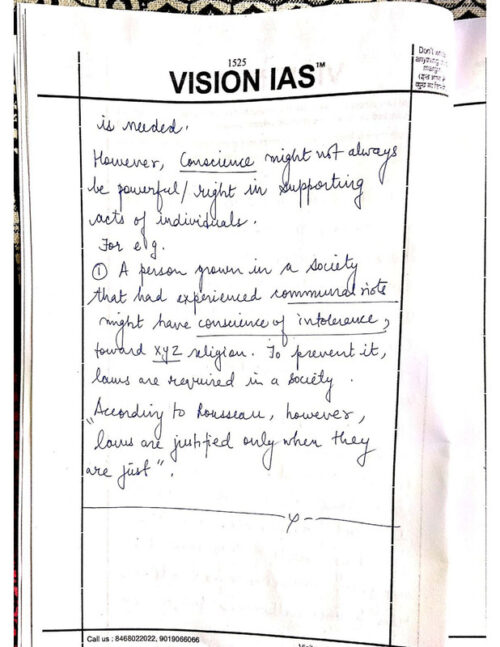 1525
VISION IAS™
Don't
anything
is needed.
However, Conscience might not always
be powerful/right in supporting
acts of individuals.
For eg.
① A person grown in a society
that had experienced communal riots
might have conscience of intolerance,
toward xyz religion. To prevent it,
laws are required in a society.
"According to Rousseau, however,
laws are justified only when they
are just".
Call us : 8468022022, 9019066066